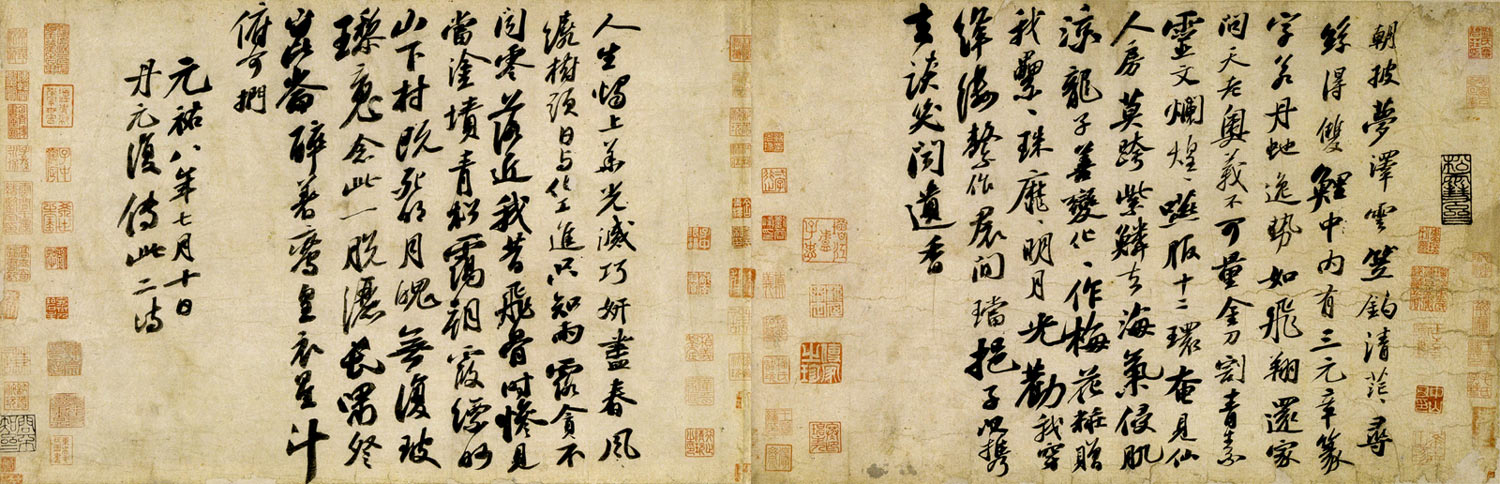 朝披夢澤雲笠釣清茫〻尋
絲得雙鯉中内有三元章篆
字若丹虵逸勢如飛翔還家
問天老奧義不可量金刀割青素
靈文爛煌〻嚥服十二環奄見仙
人房莫跨紫鱗去海氣侵肌
涼龍子善變化〻作梅花糚贈
我纍〻珠靡〻明月光勸我穿
絳縷繫作裙間璫挹子以攜
去談笑聞遺香
人生燭上華光滅巧妍盡春風
繞樹頭日与化工進只知雨露貪不
聞零落近我昔飛骨時慘見
當塗墳青松靄朝霞縹緲
山下村既死明月魄無復玻
瓈魂念此一脫灑長嘯登
崑崙醉著鸞皇衣星斗
俯可捫
元祐八年七月十日
丹元復傳此二詩